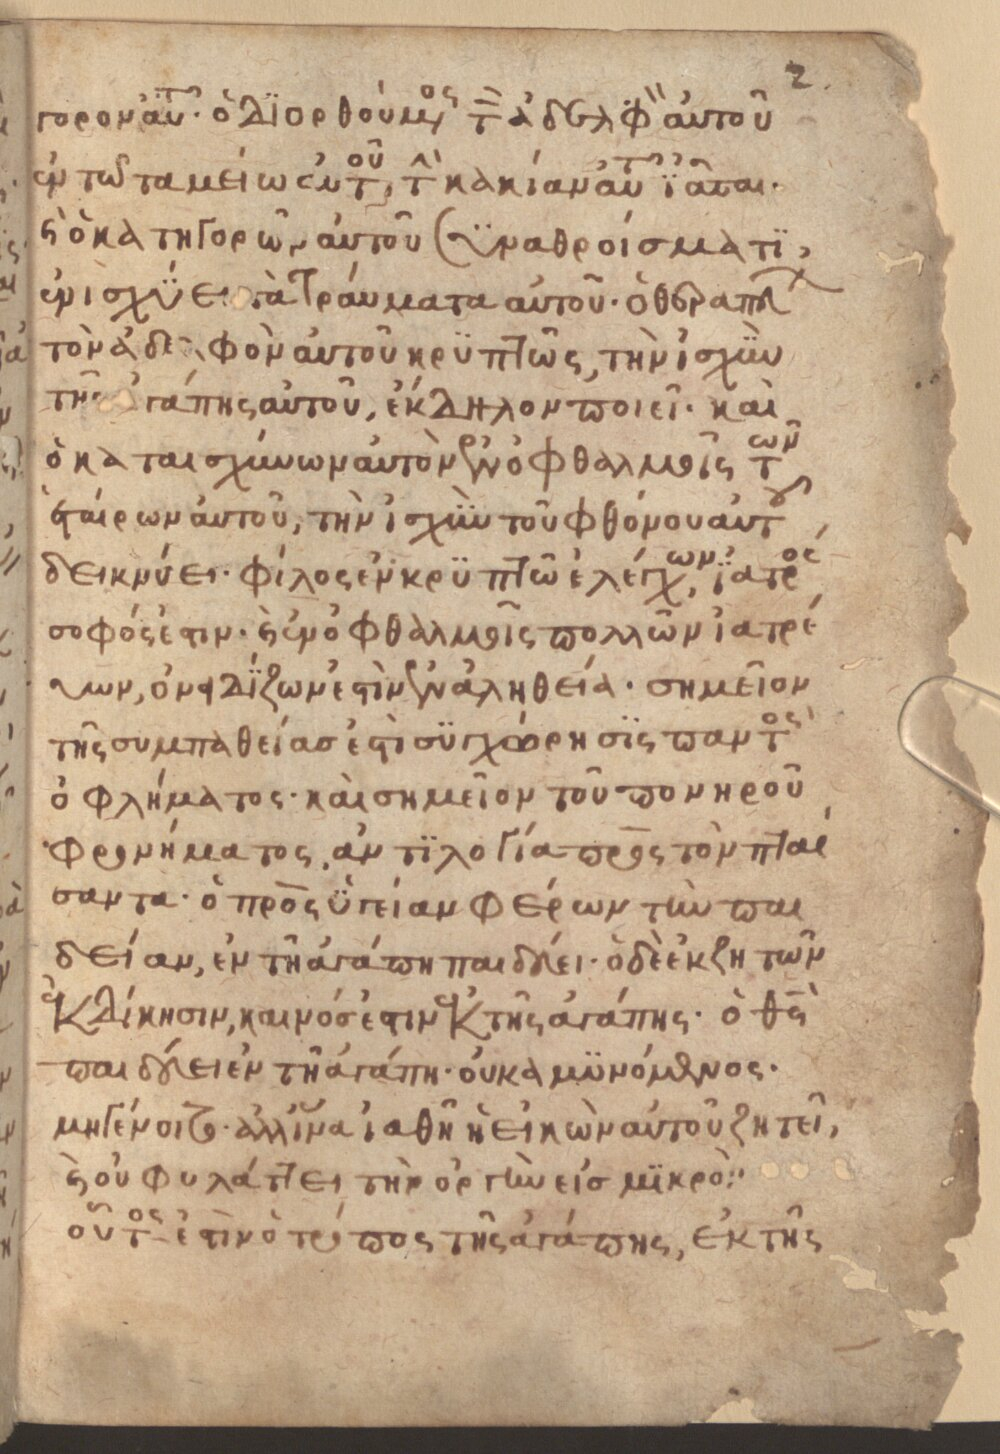 2
γορον αὐτ· ὁ διορθούμενος τὸν ἀδελφὸν αὐτοῦ
ἐν τῶ ταμείω αὐτοῦ, τὴν κακίαν αὐτοῦ ἰᾶται·
καὶ ὁ κατηγορῶν αὐτοῦ ἐν ἀθροίσματϊ,
ἐνισχΰει τὰ τραύματα αὐτοῦ· ὁ θεραπεύων
τὸν ἀδελφὸν αὐτοῦ κρϋπτῶς, τὴν ἰσχὺν
τῆς ἀγάπης αὐτοῦ, ἔκδηλον ποιεῖ· καὶ
ὁ καταισχύνων αὐτὸν ἐν ὀφθαλμοῖς τῶν
ἑταίρων αὐτοῦ, τὴν ἰσχὺν τοῦ φθόνου αὐτοῦ
δεικνύει· φίλος ἐν κρϋπτῶ ἐλέγχων, ἰατρός
σοφός ἐστιν· καὶ ἐν ὀφθαλμοῖς πολλῶν ἰατρεύ
ων, ὀνειδίζων ἐστὶν ἐν ἀληθεία· σημεῖον
τῆς συμπαθείας ἐστὶ συγχώρησϊς παντὸς
ὀφλήματος· καὶ σημεῖον τοῦ πονηροῦ
φρονήματος, ἀντϊλογία πρὸς τὸν πταί
σαντα· ὁ πρὸς ὑγείαν φέρων τὴν παι
δείαν, ἐν τῆ ἀγάπη παιδεύει· ὁ δὲ ἐκζητῶν
ἐκδίκησιν, κενός ἐστιν ἐκ τῆς ἀγάπης· ὁ θς
παιδεύει ἐν τῆ ἀγάπη· οὐκ ἀμϋνόμενος·
μὴ γένοιτο· ἀλλ' ἵνα ἰαθῆ ἡ εἰκὼν αὐτοῦ ζητεῖ,
καὶ οὐ φυλάττει τὴν ὀργὴν εἰς μϊκρὸν·
οὗτός ἐστιν ὁ τρόπος τῆς ἀγάπης, ἐκ τῆς